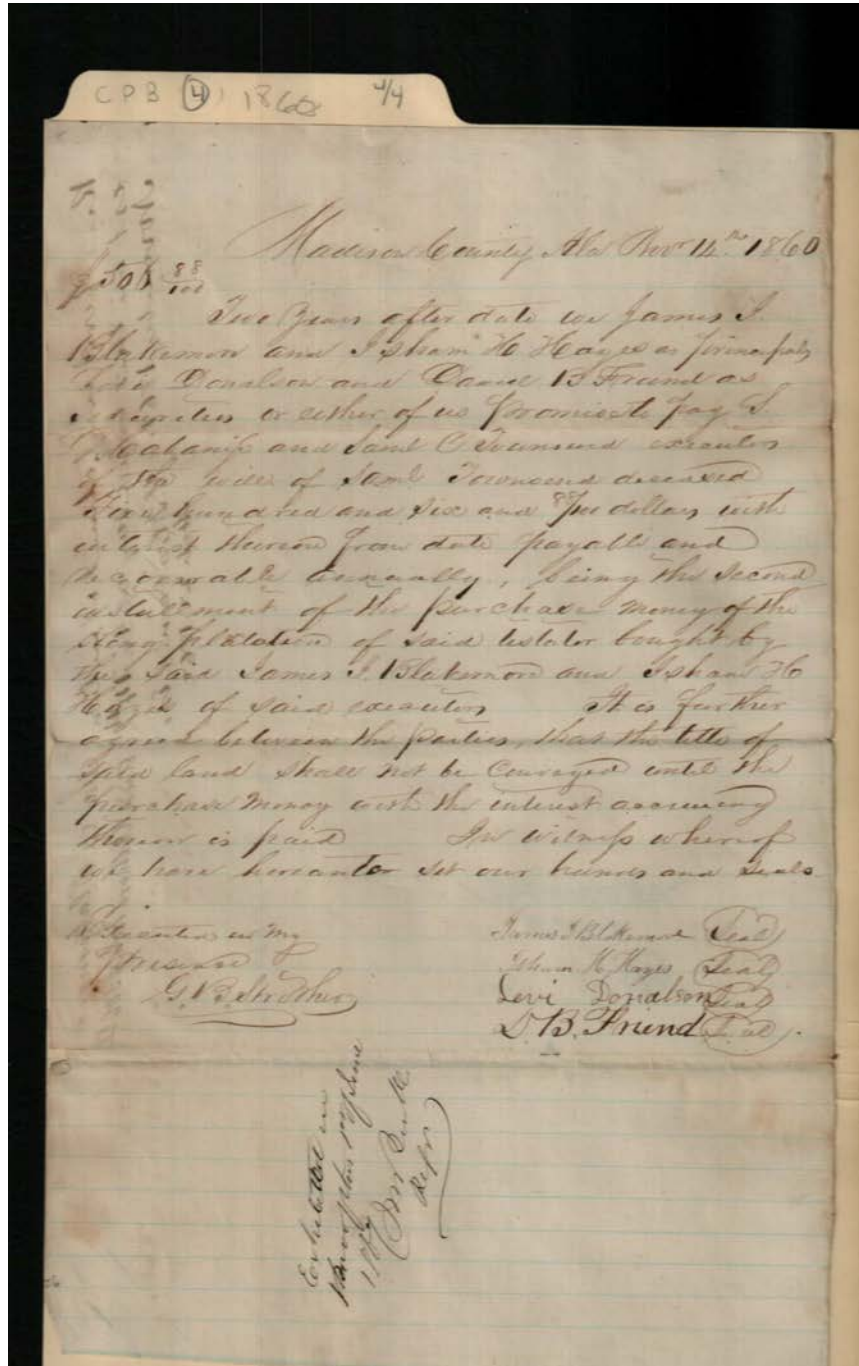 CPB (4) 1860 4/4
Madison County Ala Novr 14th 1860
$506 88/100
Two Years after date we James J.
Blakemore and Isham H Hayes as principals
Levi Donalson and David B Friend as
securities or either of us promise to pay S.
D Cabaniss and Saml C Townsend executors
of the will of Saml Townsend deceased
Five hundred and six and 88/100 dollars with
interest thereon from date payable and
recoverable annually, being the second
installment of the purchase money of the
plantation of said testator bought by
the said James J. Blakemore and Isham H
Hayes of said executors It is further
agreed between the parties, that the title of
said land shall not be conveyed until the
purchase money with the interest accruing
thereon is paid In witness whereof
we have hereunto set our hands and seals
Executed in my
presence
G. B. Strother
James J Blakemore (Seal)
Isham H Hayes (Seal)
Levi Donalson (Seal)
D. B. Friend (Seal)
Exhibited in
186
Regr